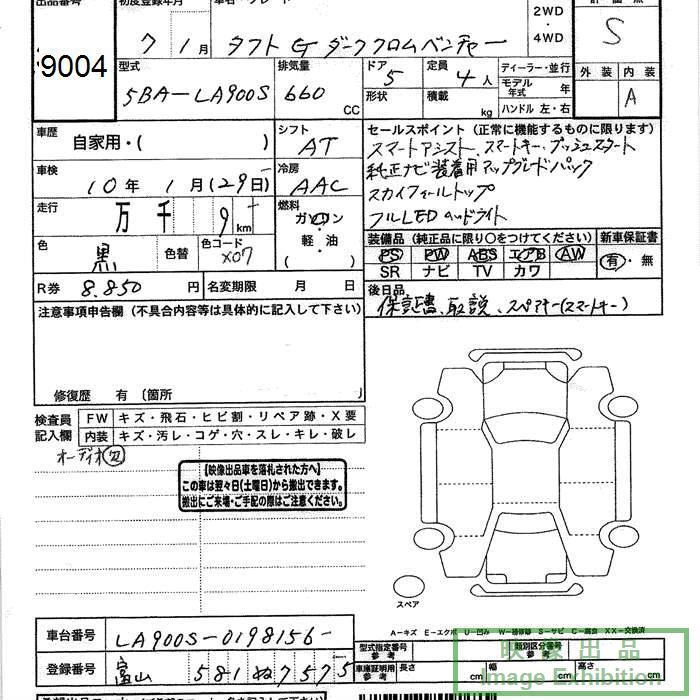 出品番号 初度登録年月 車名・グレード 評価点
9004 7年 1月 タフト G ダーククロムベンチャー 2WD・4WD S
型式 排気量 ドア 定員 ディーラー・並行 外装 内装
5BA-LA900S 660 CC 5 4人 モデル年式 年 A
形状 積載 kg ハンドル 左・右
車歴 自家用・( ) シフト AT
セールスポイント (正常に機能するものに限ります)
スマートアシスト、スマートキー・プッシュスタート
車検 10年 1月(29日) 冷房 AAC
純正ナビ装着用アップグレードパック
スカイフィールトップ
フルLEDヘッドライト
走行 万 千 9 km 燃料 ガソリン・軽・油 ( )
色 黒 色替 色コード X07
装備品 (純正品に限り○をつけてください) 新車保証書
PS PW ABS エアB AW 有・無
SR ナビ TV カワ
R券 8.850円 名変期限 月 日
後日品
保証書、取説、スペアキー(スマートキー)
注意事項申告欄 (不具合内容等は具体的に記入して下さい)
修復歴 有 (箇所
検査員記入欄 FW キズ・飛石・ヒビ割・リペア跡・X要
内装 キズ・汚レ・コゲ・穴・スレ・キレ・破レ
オーディオ欠
【映像出品車を落札された方へ】
この車は翌々日(土曜日)から搬出できます。
搬出にご来場・ご手配の際はご注意ください。
スペア
A-キズ E-エクボ U-凹み W-補修跡 S-サビ C-腐食 XX-交換済
車台番号 LA900S-0198156-
型式指定番号 参考 類別区分番号 参考
登録番号 富山 581 ぬ 7575
車庫証明用 参考 長さ cm 幅 cm 高さ cm
映像出品
Image Exhibition